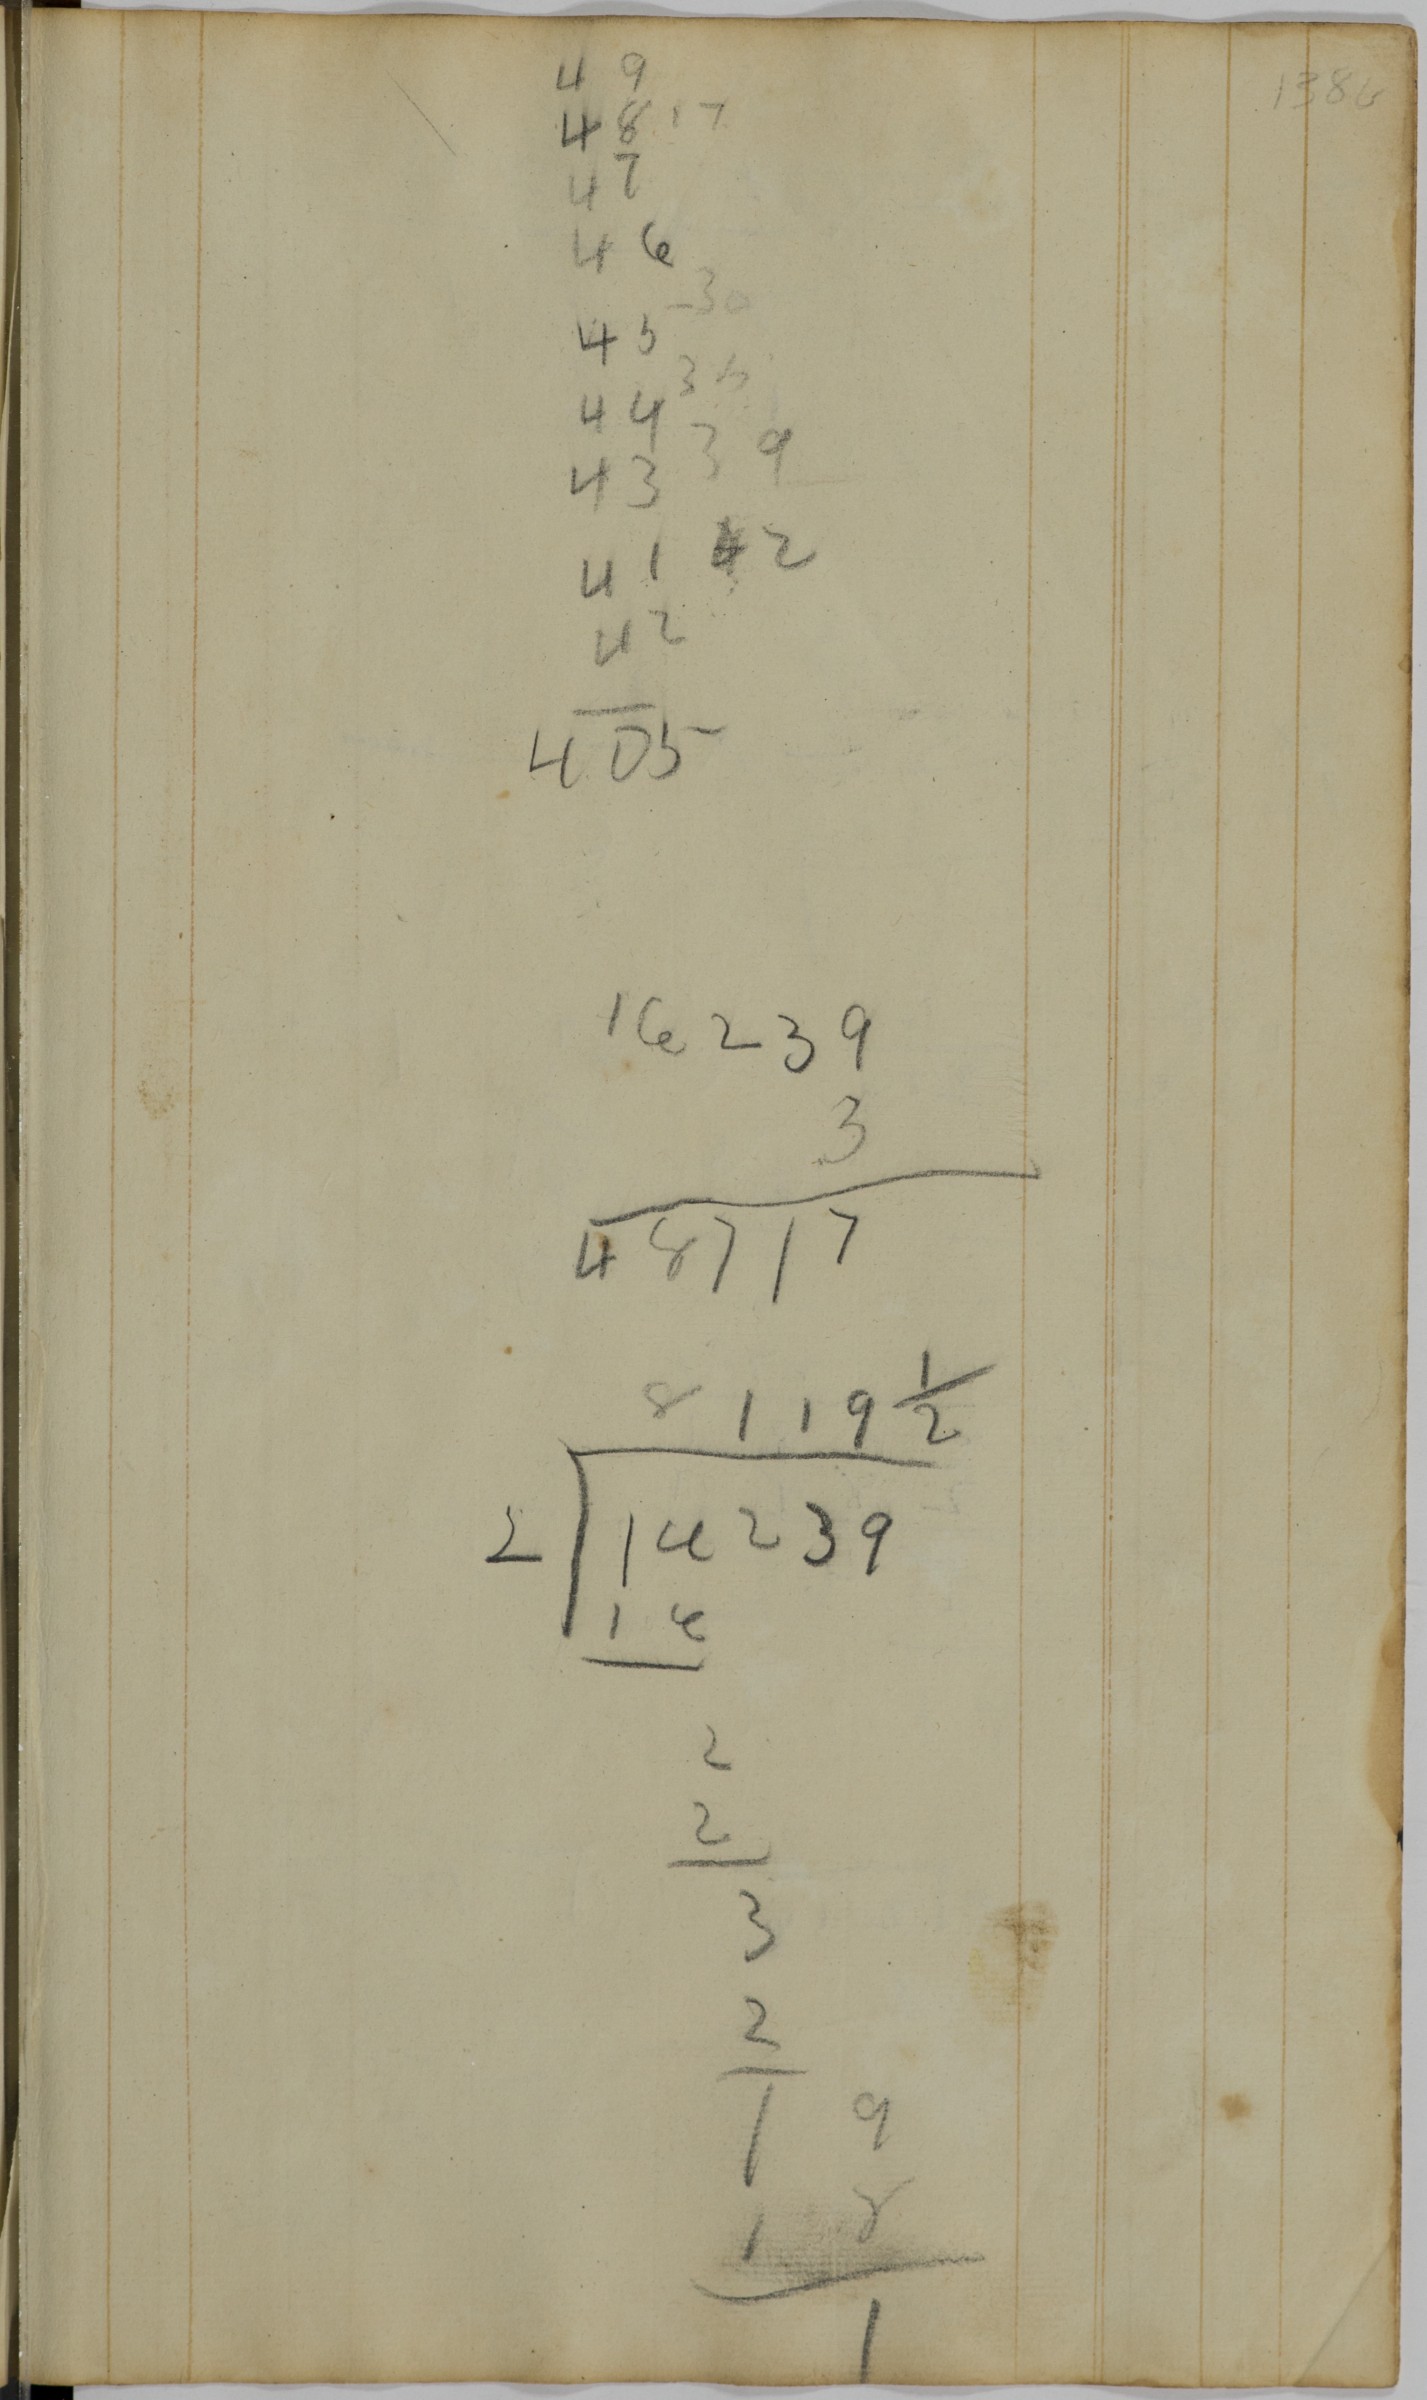 1386
49
48 17
47
46
30
45
36
44
39
43
41 42
42
405
16239
3
48717
8119 1/2
2 16239
16
2
2
3
2
19
18
1